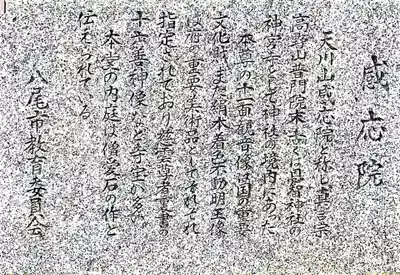 感応院
天川山感応院と称し真言宗
高野山普門院末寺で恩智神社の
神宮寺として神社の境内にあった
本尊の十一面観音像は国の重要
文化財、また絹本着色不動明王像
は府の重要美術品としてそれぞれ
指定されており慈雲尊者
十六善神像など寺宝が多い。
本堂の内庭は僧愛石の作と
伝えられている。
八尾市教育委員会